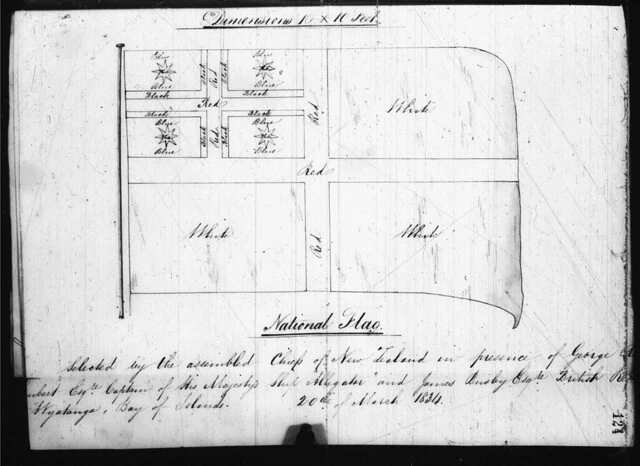 Dimensions 15 X 10 Feet.
Blue Black Red Black Blue
Blue Blue
Black Black
Red Red
Black Black
Blue Black Red Black Blue
Blue Blue
White
Red
White Red White
National Flag.
Selected by the assembled Chiefs of New Zealand in presence of George
Esqre Captain of His Majesty's Ship "Alligator" and James Busby Esqre British
Bay of Islands. 20th of March 1834.
124